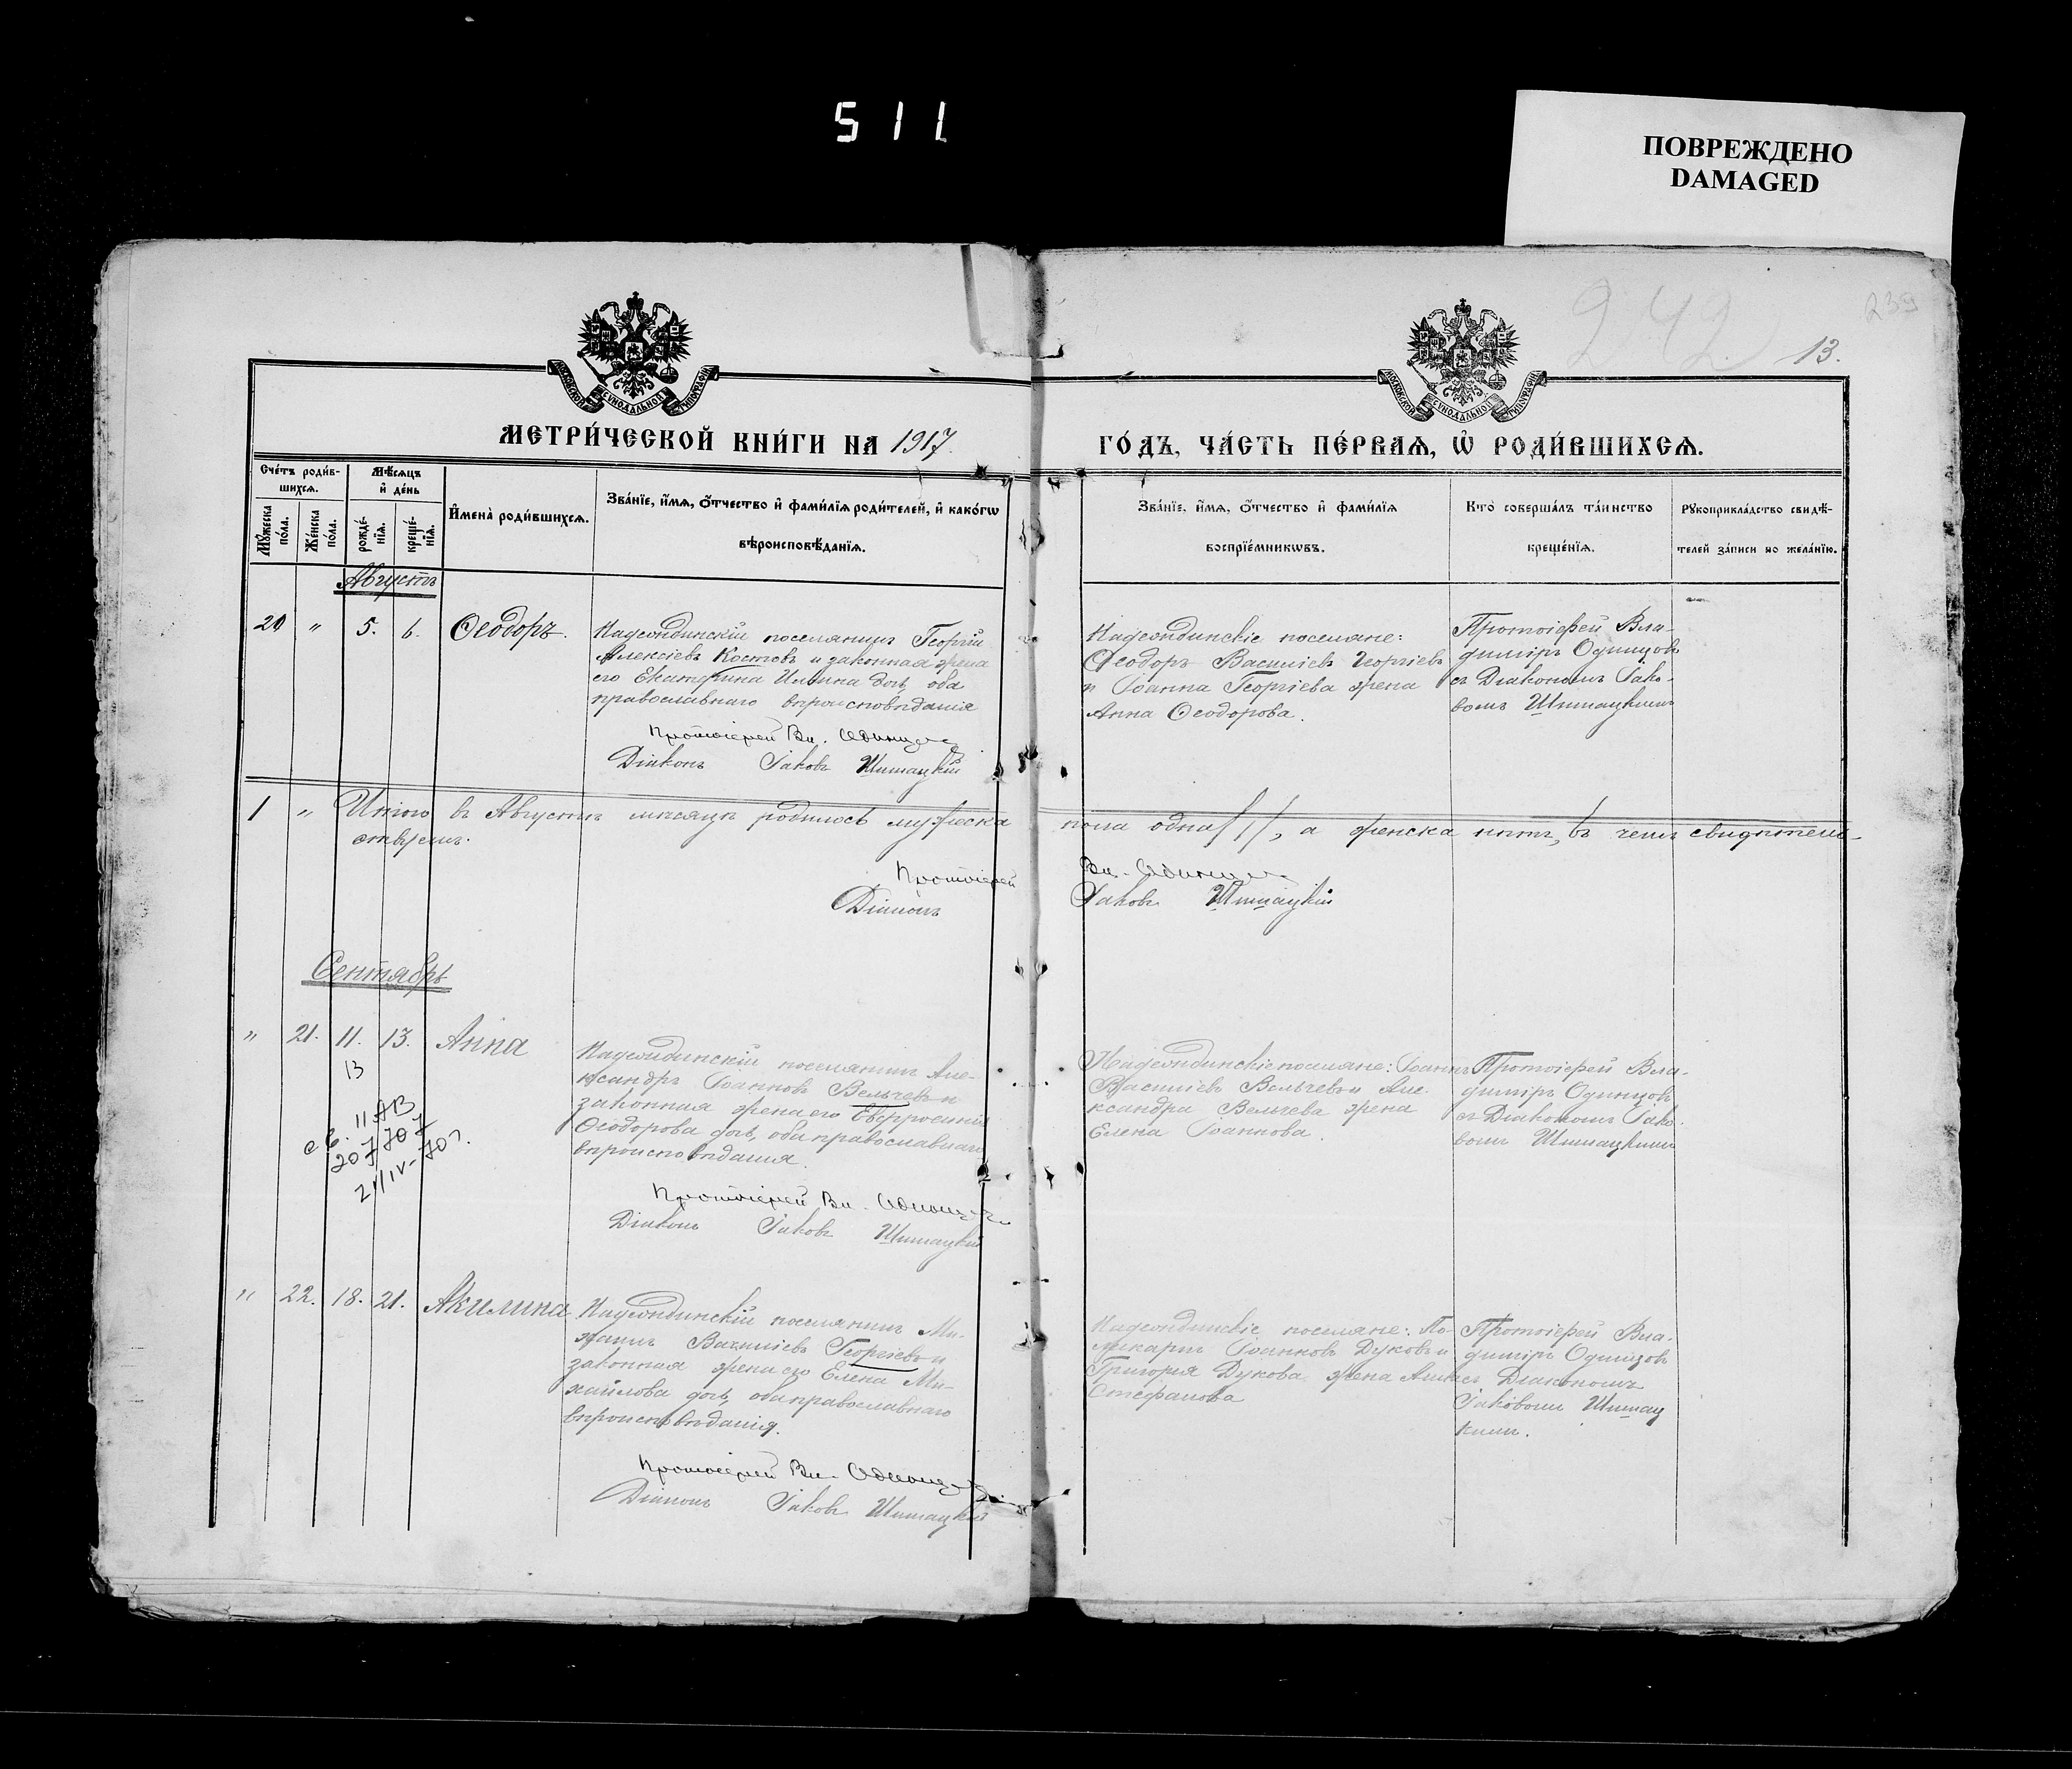 511
ПОВРЕЖДЕНО
DAMAGED
242
239
13.
МОСКОВСКОЙ СѴНОДАЛЬНОЙ ТИПОГРАФІИ
МОСКОВСКОЙ СѴНОДАЛЬНОЙ ТИПОГРАФІИ
МЕТРИ́ЧЕСКОЙ КНИ́ГИ НА 1917 ГО́ДЪ, ЧА́СТЬ ПЕ́РВАѦ, Ѽ РОДИ́ВШИХСѦ.
Сче́тъ роди́в-
шихсѧ.
Мꙋ́жеска
по́ла.
Же́нска
по́ла.
Мѣ́сѧцъ
и҆ де́нь
рожде́-
нїѧ.
креще́-
нїѧ.
И҆мена̀ роди́вшихсѧ.
Зва́нїе, и҆́мѧ, ѻ҆́тчество и҆ фами́лїѧ роди́телей, и҆ како́гѡ
вѣроисповѣ́данїѧ.
Зва́нїе, и҆́мѧ, ѻ҆́тчество и҆ фами́лїѧ
воспрїе́мникѡвъ.
Кто̀ соверша́лъ та́инство
креще́нїѧ.
Рꙋкоприкла́дство свидѣ́-
телей за́писи по жела́нїю.
Августъ
20 " 5. 6. Ѳеодоръ.
Надеждинскій поселянинъ Георгій
Алексіевъ Костовъ и законная жена
его Екатерина Ильина дочь, оба
православнаго вѣроисповѣданія
Протоіерей Вл. Одинцовъ
Діаконъ Іаковъ Шишацкій
Надеждинскіе поселяне:
Ѳеодоръ Василіевъ Георгіевъ
и Іоанна Георгіева жена
Анна Ѳеодорова.
Протоіерей Вла-
диміръ Одинцовъ
съ Діакономъ Іако-
вомъ Шишацкимъ
1 " Итого въ Августѣ мѣсяцѣ родилось мужеска пола одна /1/, а женска нѣтъ, въ чемъ свидѣтель-
ствуемъ.
Протоіерей Вл. Одинцовъ
Діаконъ Іаковъ Шишацкій
Сентябрь
" 21. 11. 13. Анна
13
св. II АВ
207707
21/IV-70г.
Надеждинскій поселянинъ Але-
ксандръ Іоанновъ Вельчевъ и
законная жена его Евфросинія
Ѳеодорова дочь, оба православнаго
вѣроисповѣданія.
Протоіерей Вл. Одинцовъ
Діаконъ Іаковъ Шишацкій
Надеждинскіе поселяне: Іоаннъ
Василіевъ Вельчевъ и Але-
ксандра Вельчева жена
Елена Іоаннова.
Протоіерей Вла-
диміръ Одинцовъ
съ Діакономъ Іако-
вомъ Шишацкимъ
" 22. 18. 21. Акилина
Надеждинскій поселянинъ Ми-
хаилъ Василіевъ Георгіевъ и
законная жена его Елена Ми-
хайлова дочь, оба православнаго
вѣроисповѣданія.
Протоіерей Вл. Одинцовъ
Діаконъ Іаковъ Шишацкій
Надеждинскіе поселяне: По-
ликарпъ Іоанновъ Дуковъ и
Григорія Дукова жена
Стефанова
Протоіерей Вла-
диміръ Одинцовъ
съ Діакономъ
Іаковомъ Шишац
кимъ.